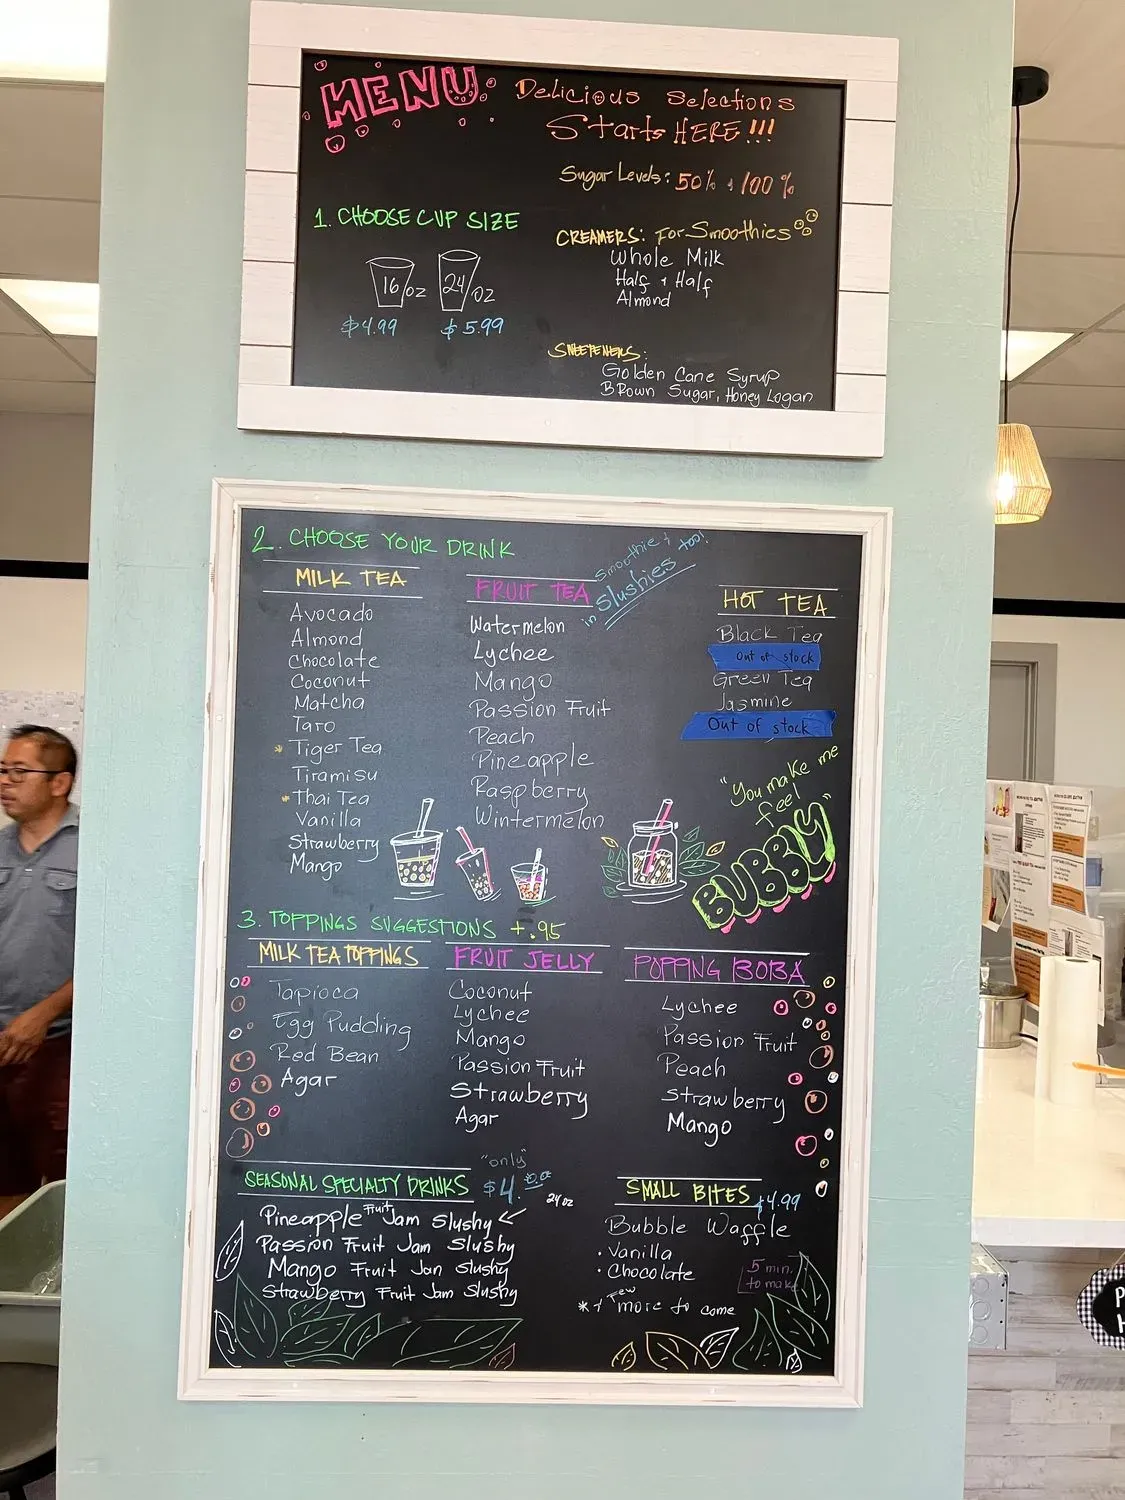 MENU
Delicious Selections
Starts HERE!!!
Sugar Levels: 50% + 100%
1. CHOOSE CUP SIZE
16 oz
24 oz
$4.99
$5.99
CREAMERS: For Smoothies
Whole Milk
Half + Half
Almond
SWEETENERS:
Golden Cane Syrup
Brown Sugar, Honey Logan
2. CHOOSE YOUR DRINK
MILK TEA
Avocado
Almond
Chocolate
Coconut
Matcha
Taro
* Tiger Tea
Tiramisu
* Thai Tea
Vanilla
Strawberry
Mango
FRUIT TEA
in Smoothie + Slushies too!
Watermelon
Lychee
Mango
Passion Fruit
Peach
Pineapple
Raspberry
Wintermelon
HOT TEA
Black Tea
Out of stock
Green Tea
Jasmine
Out of stock
"You make me
feel
BUBBLY"
3. TOPPINGS SUGGESTIONS +.95
MILK TEA TOPPINGS
Tapioca
Egg Pudding
Red Bean
Agar
FRUIT JELLY
Coconut
Lychee
Mango
Passion Fruit
Strawberry
Agar
POPPING BOBA
Lychee
Passion Fruit
Peach
Strawberry
Mango
SEASONAL SPECIALTY DRINKS
"only"
$4.00
24 oz
Pineapple Fruit Jam Slushy
Passion Fruit Jam Slushy
Mango Fruit Jam Slushy
Strawberry Fruit Jam Slushy
SMALL BITES $4.99
Bubble Waffle
· Vanilla
· Chocolate
5 min.
to make
* + Few more to come